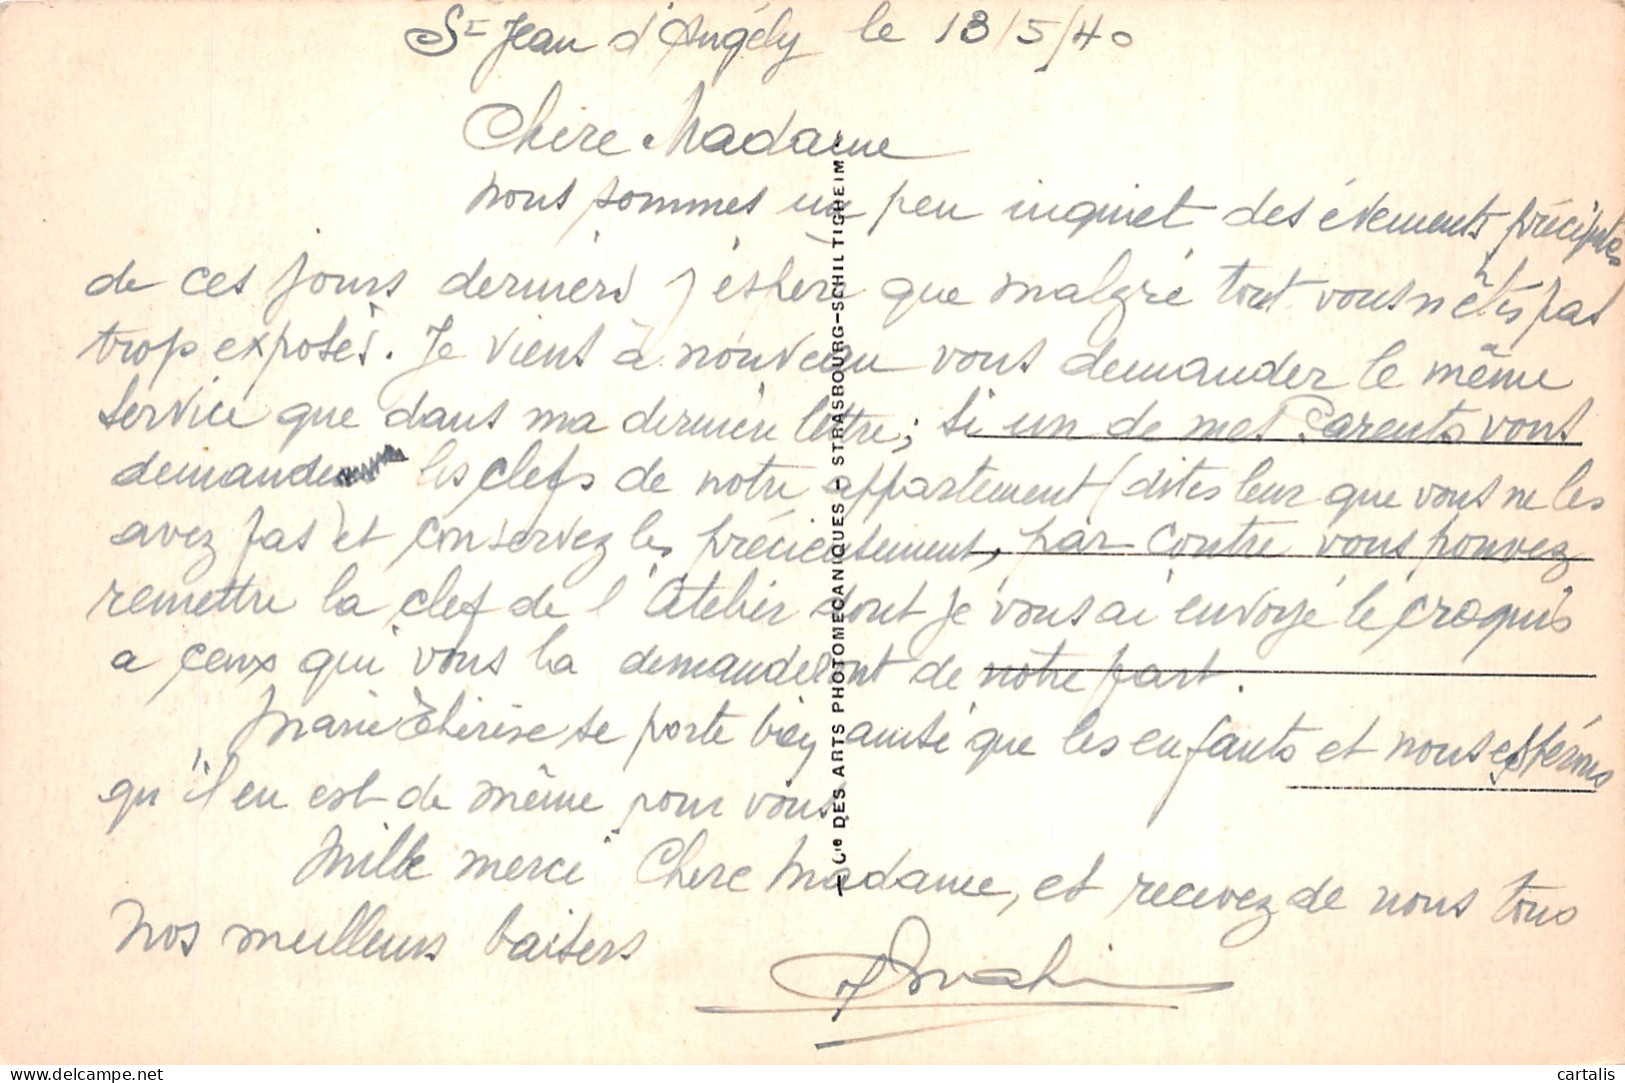 St Jean d'Angély le 13/5/40
Chère Madame
nous sommes un peu inquiet des évements précipités
de ces jours derniers j'espère que malgré tout vous n'êtes pas
trop exposés. Je viens à nouveau vous demander le même
service que dans ma dernière lettre; si un de mes Parents vous
demande les clefs de notre appartement (dites leur que vous ne les
avez pas) et conservez les précieusement, par contre vous pouvez
remettre la clef de l'Atelier dont je vous ai envoyé le croquis
a ceux qui vous la demanderont de notre part.
Marie Thérèse se porte bien ainsi que les enfants et nous espérons
qu'il en est de même pour vous
Mille merci Chère Madame, et recevez de nous tous
nos meilleurs baisers
— Cie DES ARTS PHOTOMECANIQUES — STRASBOURG-SCHILTIGHEIM —
delcampe.net
cartalis